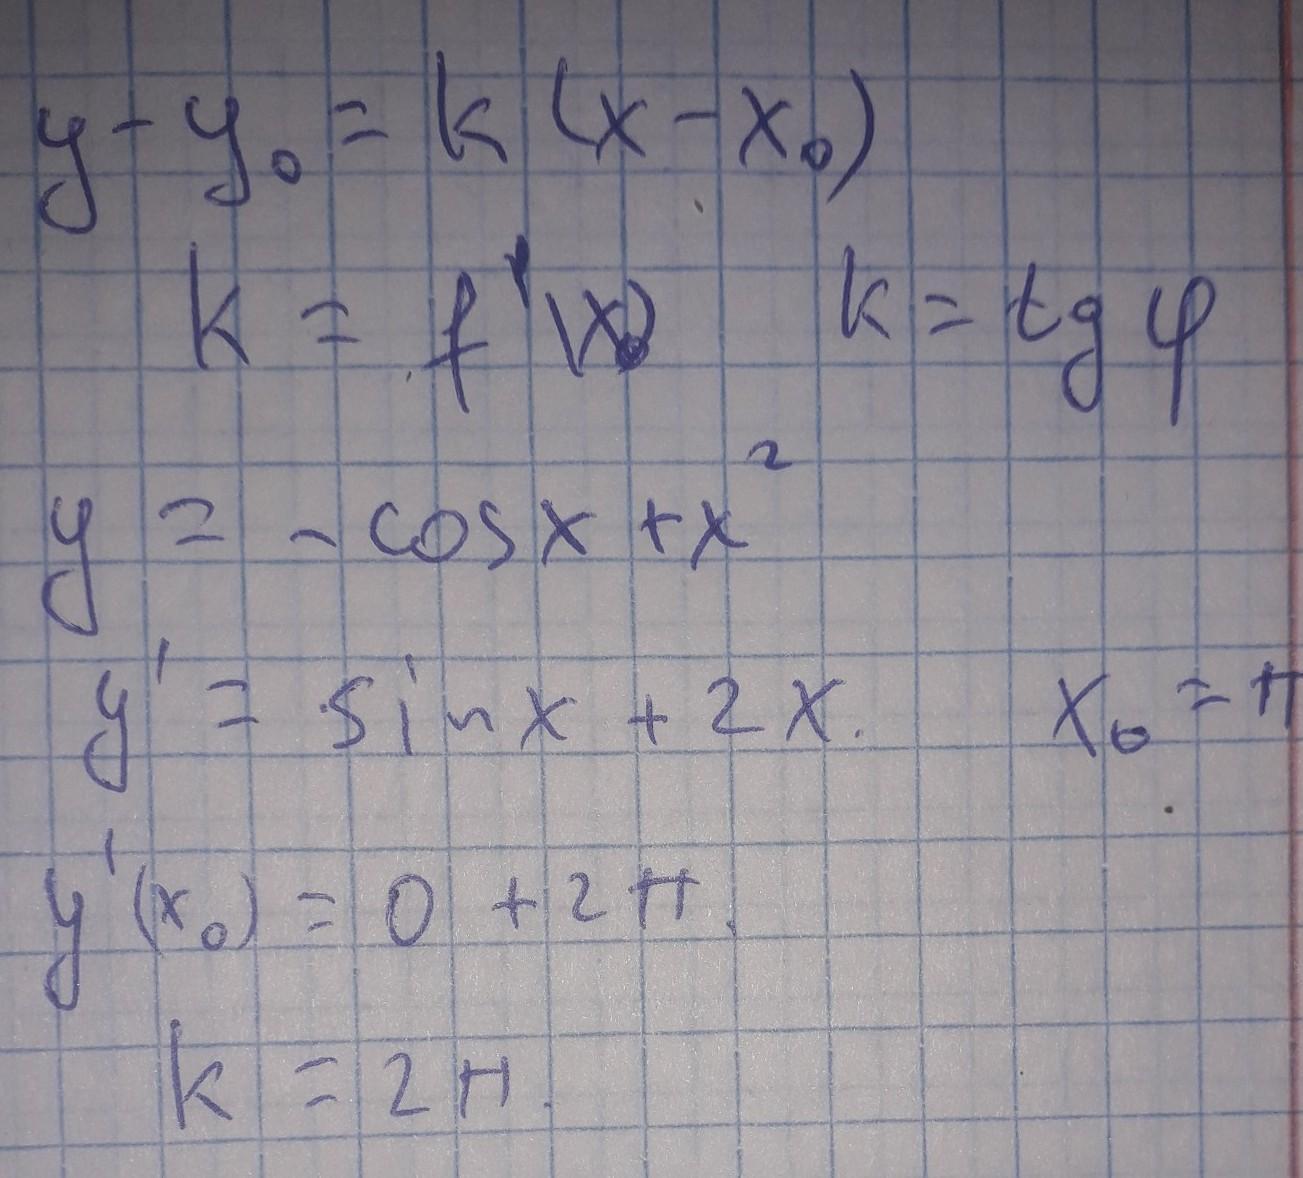 y - y₀ = k (x - x₀)
k = f'(x₀) k = tg φ
y = - cos x + x²
y' = sin x + 2x. x₀ = π
y'(x₀) = 0 + 2π.
k = 2π.